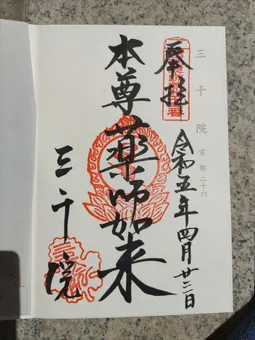 三千院 京都二十六
奉拝
令和五年四月廿二日
本尊薬師如来
三千院